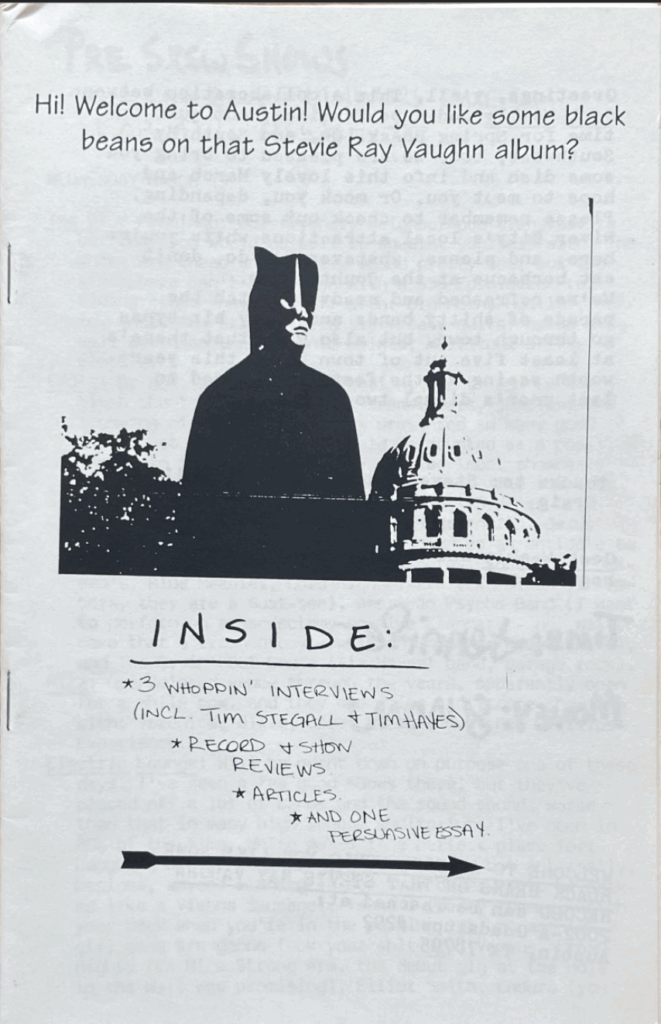 Hi! Welcome to Austin! Would you like some black
beans on that Stevie Ray Vaughn album?
INSIDE:
* 3 WHOPPIN' INTERVIEWS
(INCL. TIM STEGALL & TIM HAYES)
* RECORD & SHOW
REVIEWS
* ARTICLES.
* AND ONE
PERSUASIVE ESSAY.